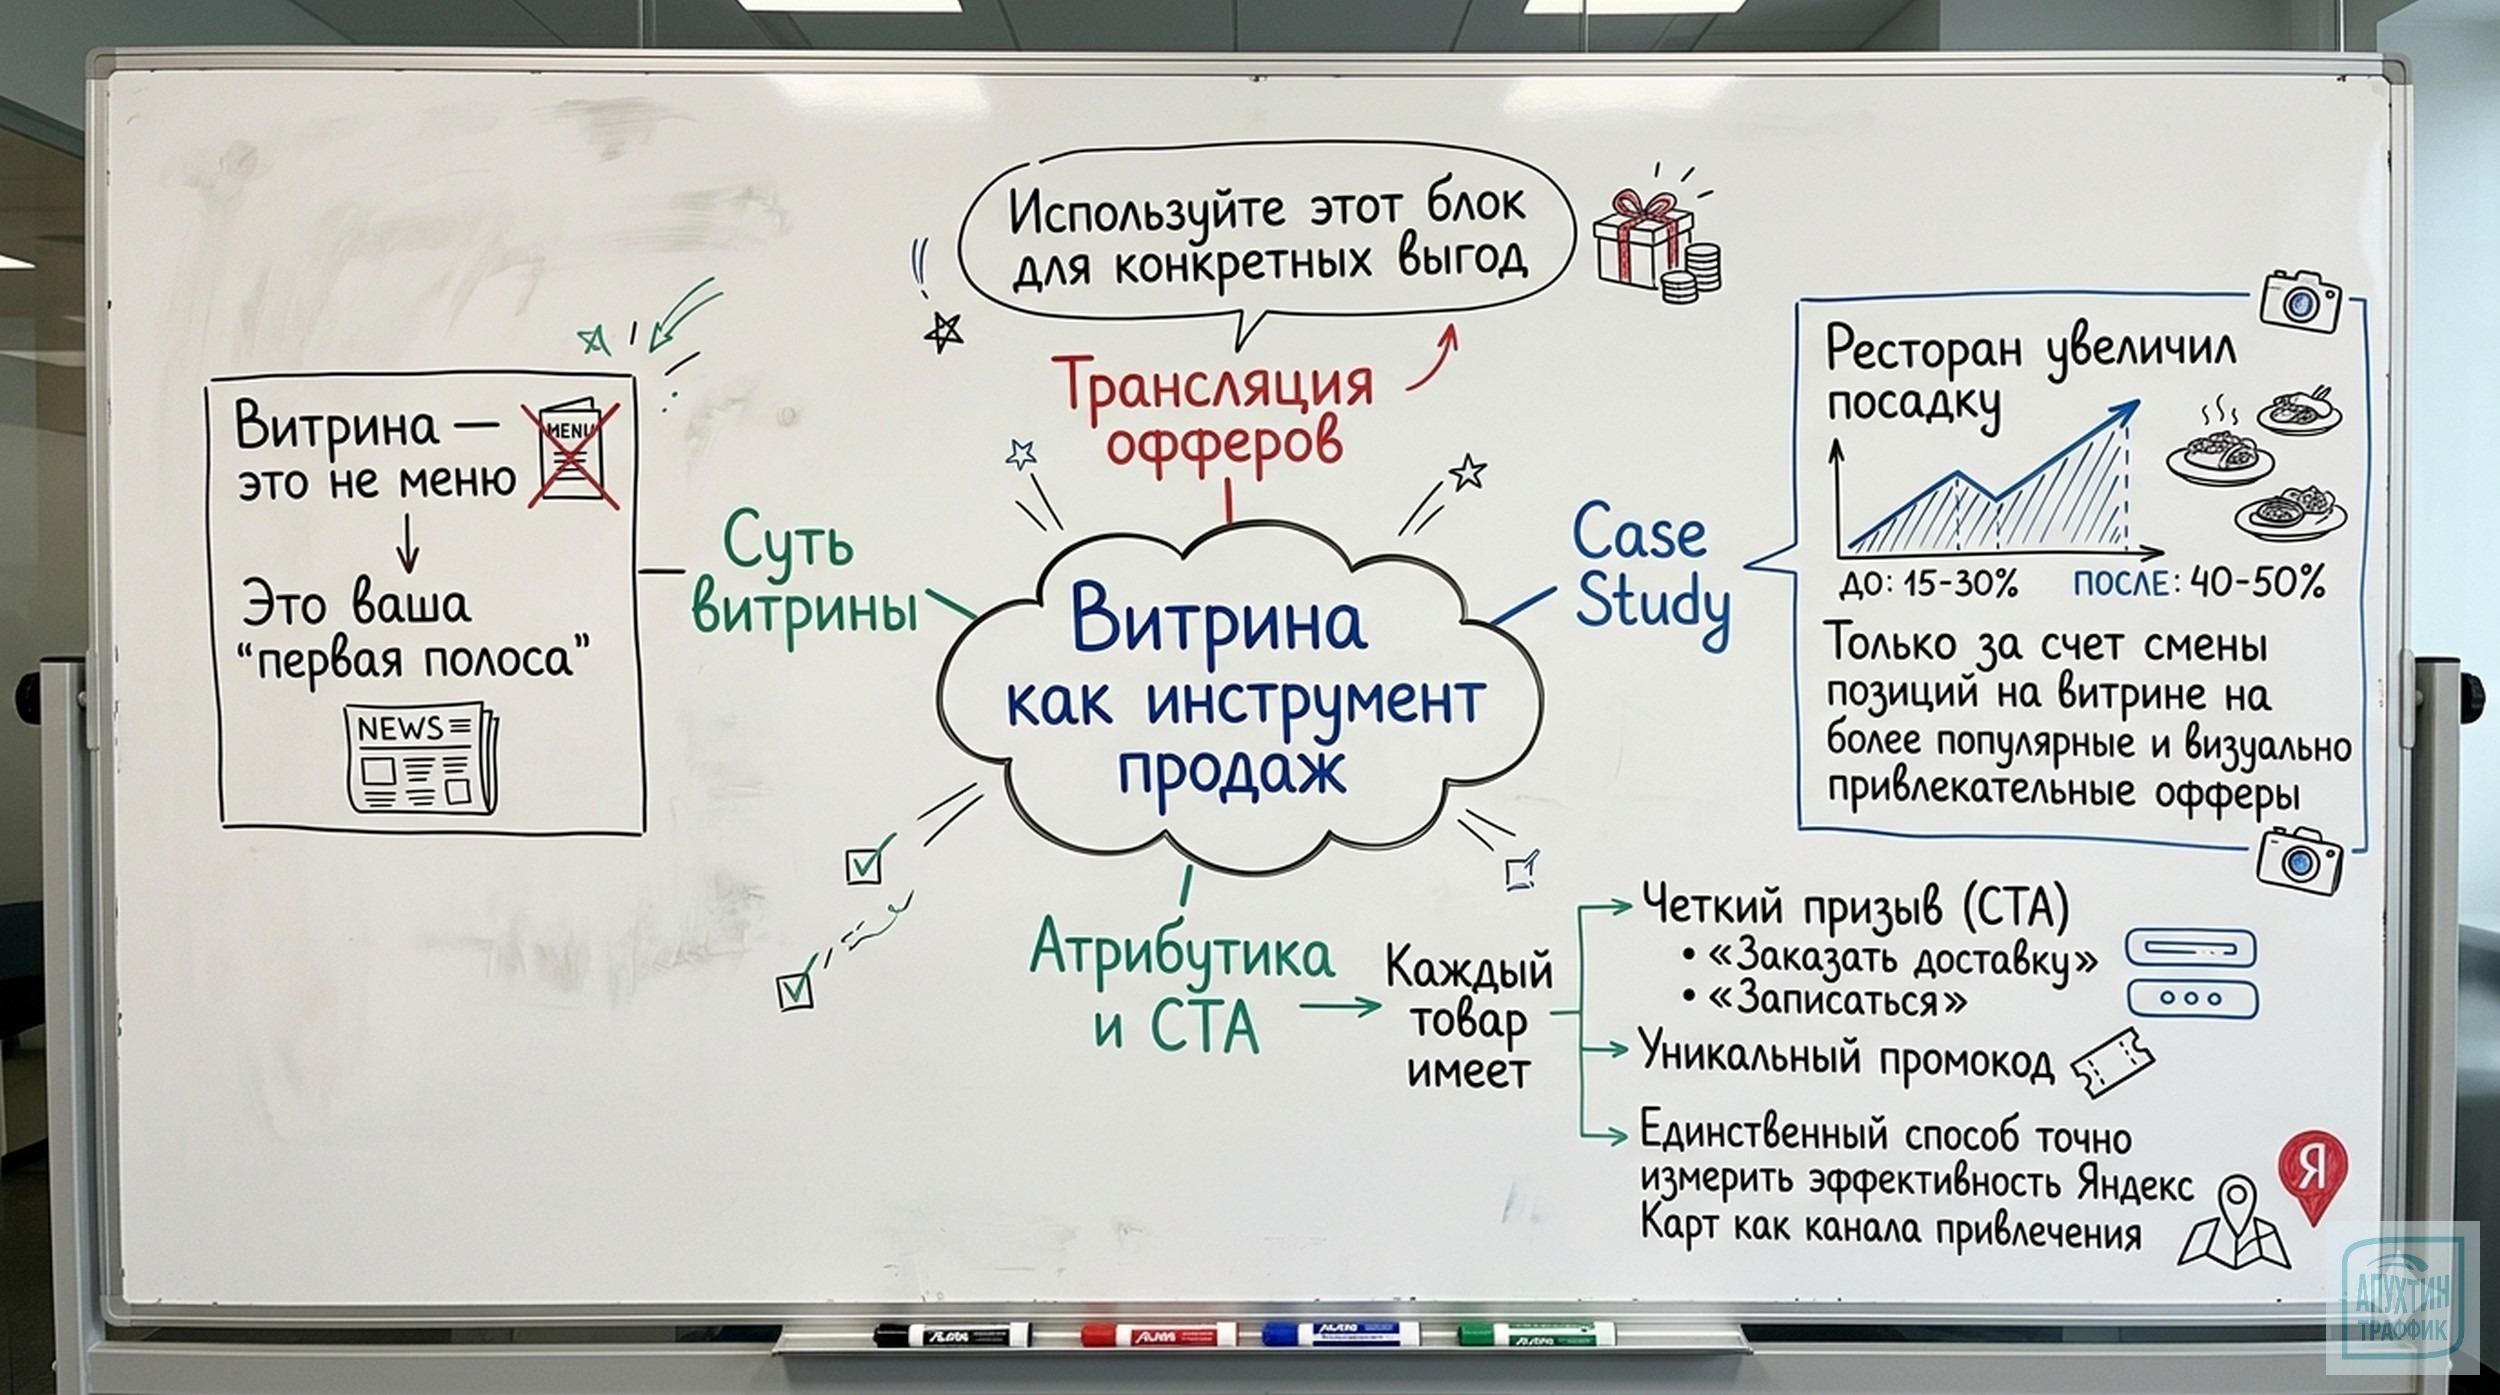 Используйте этот блок
для конкретных выгод
Трансляция
офферов
Витрина —
это не меню
MENU
Это ваша
"первая полоса"
NEWS
Суть
витрины
Витрина
как инструмент
продаж
Case
Study
Ресторан увеличил
посадку
ДО: 15-30% ПОСЛЕ: 40-50%
Только за счет смены
позиций на витрине на
более популярные и визуально
привлекательные офферы
Атрибутика
и СТА
Каждый
товар
имеет
Четкий призыв (СТА)
• «Заказать доставку»
• «Записаться»
Уникальный промокод
Единственный способ точно
измерить эффективность Яндекс
Карт как канала привлечения
Я
АПУХТИН
ТРАФФИК